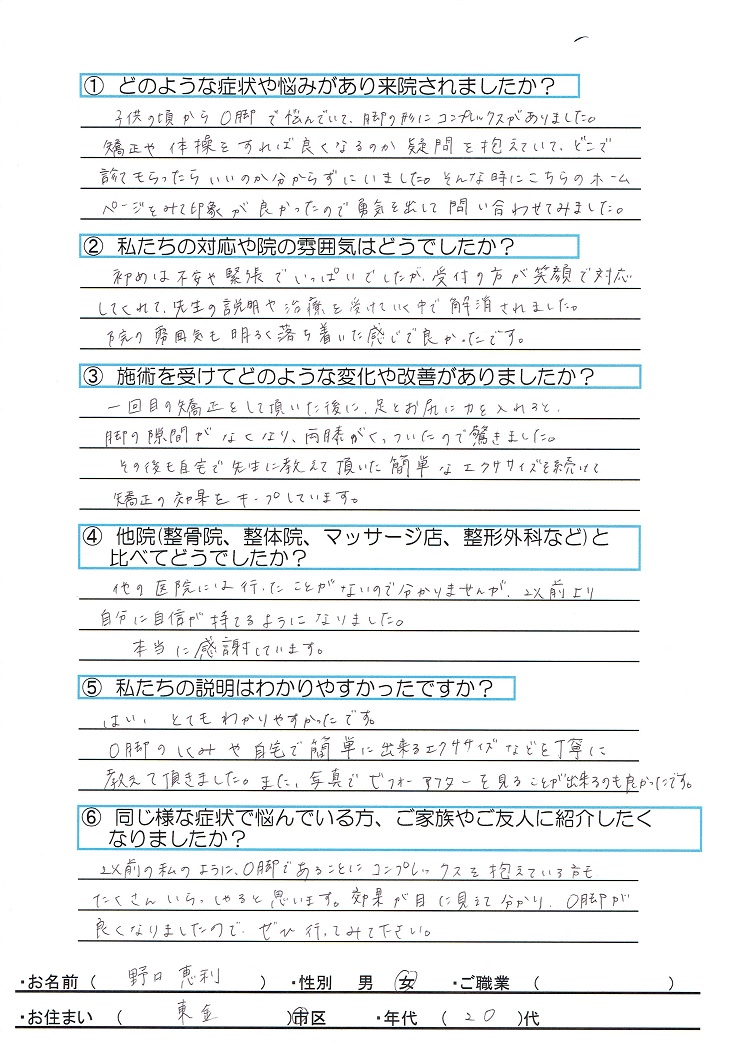 ① どのような症状や悩みがあり来院されましたか？
子供の頃からO脚で悩んでいて、脚の形にコンプレックスがありました。
矯正や体操をすれば良くなるのか疑問を抱えていて、どこで
診てもらったらいいのか分からずにいました。そんな時にこちらのホーム
ページをみて印象が良かったので勇気を出して問い合わせてみました。
② 私たちの対応や院の雰囲気はどうでしたか？
初めは不安や緊張でいっぱいでしたが、受付の方が笑顔で対応
してくれて、先生の説明や治療を受けていく中で解消されました。
院の雰囲気も明るく落ち着いた感じで良かったです。
③ 施術を受けてどのような変化や改善がありましたか？
一回目の矯正をして頂いた後に、足とお尻に力を入れると、
脚の隙間がなくなり、両膝がくっついたので驚きました。
その後も自宅で先生に教えて頂いた簡単なエクササイズを続けて
矯正の効果をキープしています。
④ 他院(整骨院、整体院、マッサージ店、整形外科など)と
比べてどうでしたか？
他の医院には行ったことがないので分かりませんが、以前より
自分に自信が持てるようになりました。
本当に感謝しています。
⑤ 私たちの説明はわかりやすかったですか？
はい、とてもわかりやすかったです。
O脚のしくみや自宅で簡単に出来るエクササイズなどを丁寧に
教えて頂きました。また、写真でビフォーアフターを見ることが出来るのも良かったです。
⑥ 同じ様な症状で悩んでいる方、ご家族やご友人に紹介したく
なりましたか？
以前の私のように、O脚であることにコンプレックスを抱えている方も
たくさんいらっしゃると思います。効果が目に見えて分かり、O脚が
良くなりましたので、ぜひ行ってみて下さい。
・お名前（ 野口 恵利 ） ・性別 男 女 ・ご職業（ ）
・お住まい（ 東金 ）市区 ・年代（ 20 ）代